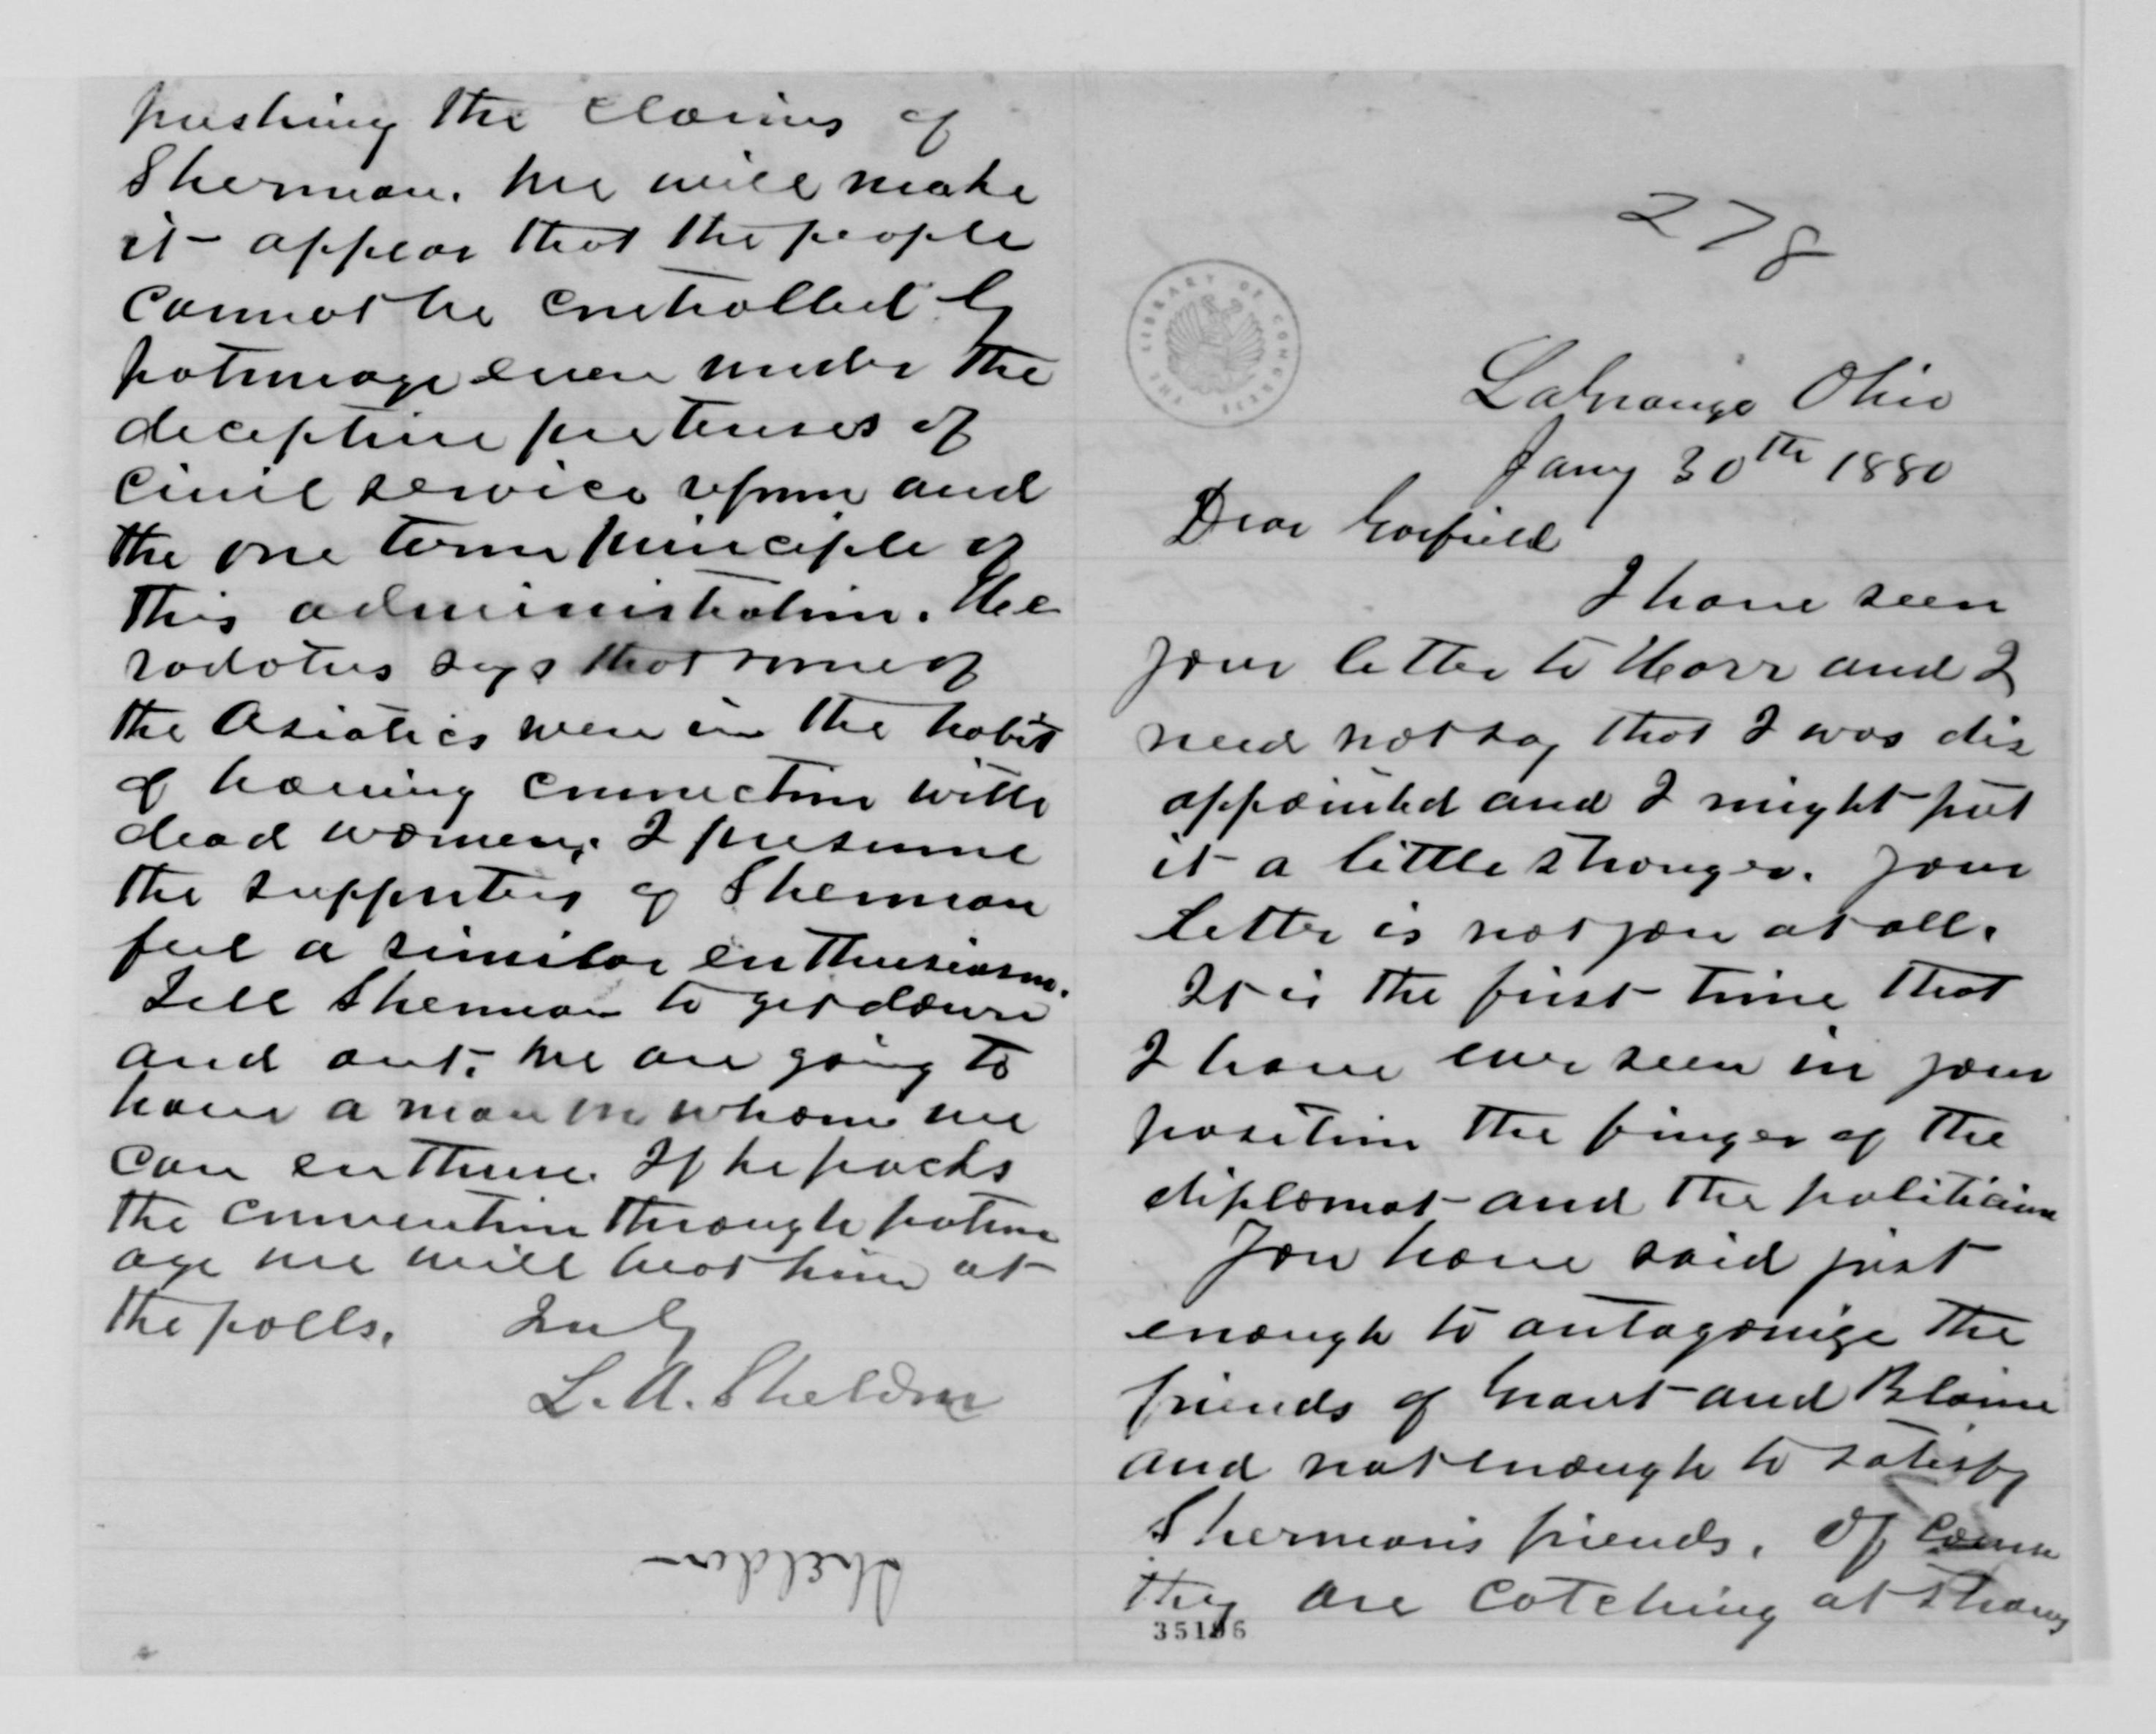 278
LaGrange Ohio
Jany 30th 1880
Dear Garfield
I have seen
your letter to Horr and I
need not say that I was dis
appointed and I might put
it a little stronger. Your
letter is not you at all.
It is the first time that
I have ever seen in your
position the finger of the
diplomat and the politician
You have said just
enough to antagonize the
friends of Grant and Blaine
and not enough to satisfy
Sherman's friends. Of course
they are catching at straws
35196
THE LIBRARY OF CONGRESS
pushing the claims of
Sherman. We will make
it appear that the people
cannot be controlled by
patronage even under the
deceptive pretenses of
civil service reform and
the one term principle of
this administration. He
rodotus says that some of
the Asiatics were in the habit
of having connection with
dead women. I presume
the supporters of Sherman
feel a similar enthusiasm.
Tell Sherman to get down
and out. We are going to
have a man on whom we
can enthuse. If he packs
the convention through patron
age we will beat him at
the polls. Truly
L. A. Sheldon
Sheldon